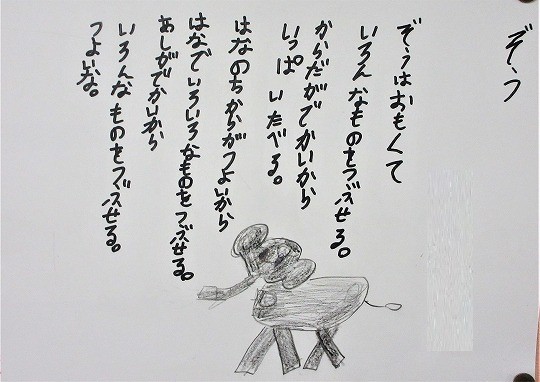 ぞう
ぞうはおもくて
いろんなものをつぶせる。
からだがでかいから
いっぱいたべる。
はなのちからがつよいから
はなでいろいろなものをつぶせる。
あしがでかいから
いろんなものをつぶせる。
つよいな。